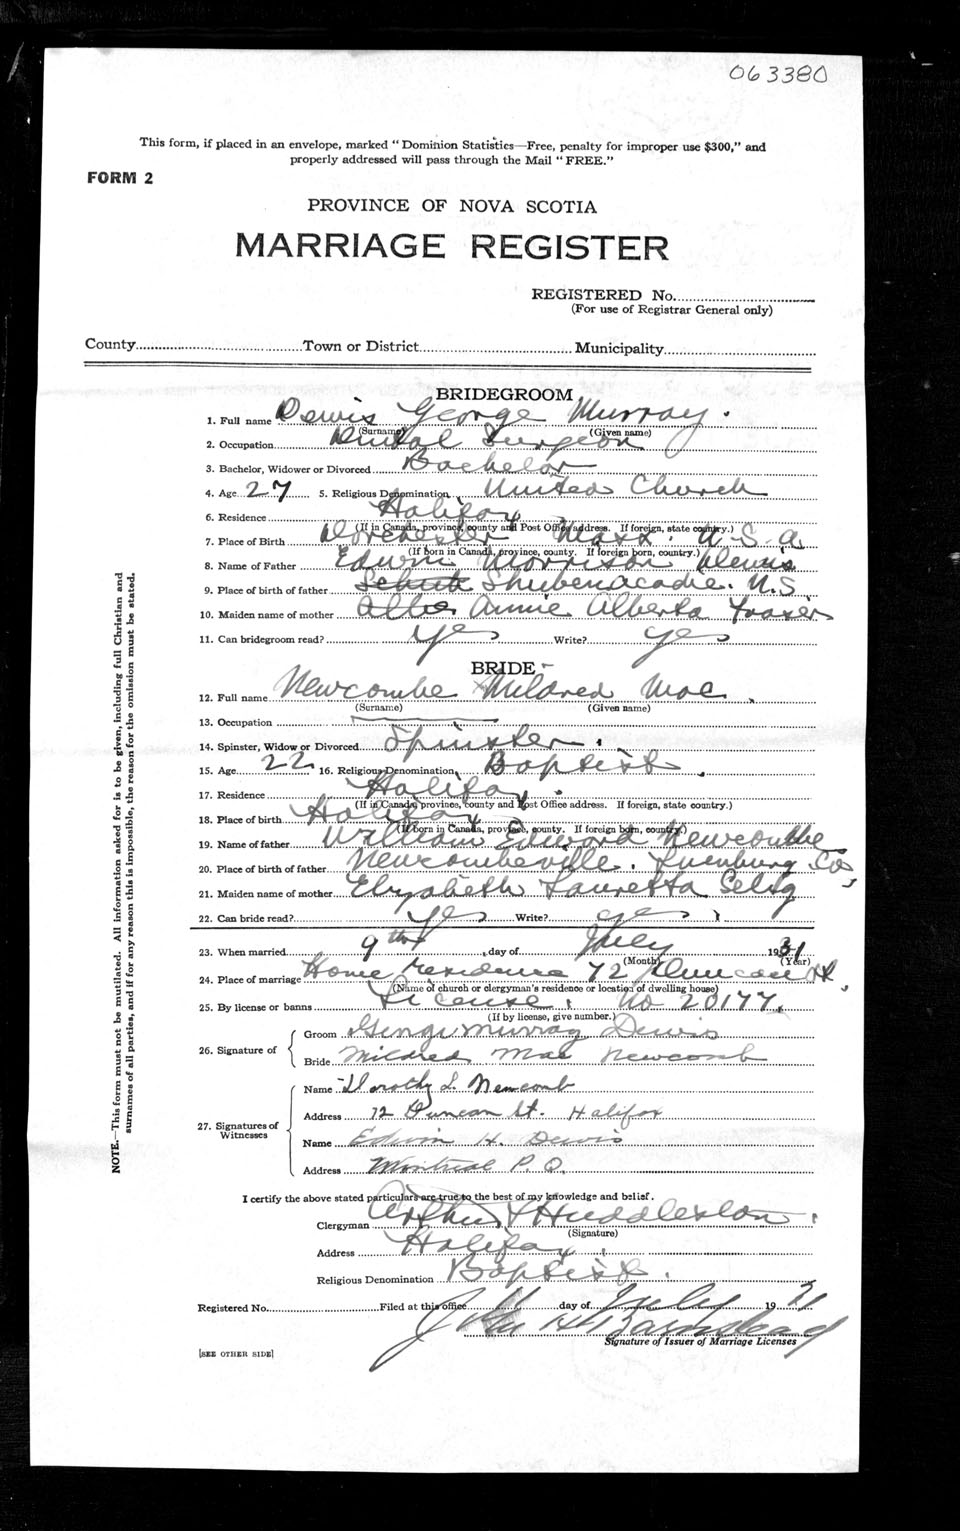 063380
This form, if placed in an envelope, marked "Dominion Statistics—Free, penalty for improper use $300," and
properly addressed will pass through the Mail "FREE."
FORM 2
PROVINCE OF NOVA SCOTIA
MARRIAGE REGISTER
REGISTERED No.
(For use of Registrar General only)
County Town or District Municipality
BRIDEGROOM
1. Full name Dewis George Murray.
(Surname) (Given name)
2. Occupation Dental Surgeon
3. Bachelor, Widower or Divorced Bachelor
4. Age 27 5. Religious Denomination United Church
6. Residence Halifax
(If in Canada, province, county and Post Office address. If foreign, state country.)
7. Place of Birth Dorchester Mass. U.S.A
(If born in Canada, province, county. If foreign born, country.)
8. Name of Father Edwin Morrison Dewis
9. Place of birth of father Shubenacadie. N.S
10. Maiden name of mother Annie Alberta Fraser
11. Can bridegroom read? Yes Write? yes
BRIDE
12. Full name Newcombe Mildred Mae.
(Surname) (Given name)
13. Occupation
14. Spinster, Widow or Divorced Spinster.
15. Age 22 16. Religious Denomination Baptist.
17. Residence Halifax.
(If in Canada, province, county and Post Office address. If foreign, state country.)
18. Place of birth Halifax
(If born in Canada, province, county. If foreign born, country.)
19. Name of father William Edward Newcombe
20. Place of birth of father Newcombeville. Lunenburg Co,
21. Maiden name of mother Elizabeth Lauretta Selig
22. Can bride read? Yes Write? yes
23. When married 9th day of July 1931
(Month) (Year)
24. Place of marriage Home residence 72 Duncan St,
(Name of church or clergyman's residence or location of dwelling house)
25. By license or banns License. No 20177.
(If by license, give number.)
26. Signature of
Groom George Murray Dewis
Bride Mildred Mae Newcomb
27. Signatures of
Witnesses
Name Dorothy L. Newcomb
Address 72 Duncan St. Halifax
Name Edwin H. Dewis
Address Montreal P.Q.
I certify the above stated particulars are true to the best of my knowledge and belief.
Clergyman Arthur Huddleston.
(Signature)
Address Halifax.
Religious Denomination Baptist.
Registered No. Filed at this office day of July 19 31
John H Barnstead
Signature of Issuer of Marriage Licenses
[SEE OTHER SIDE]
NOTE.—This form must not be mutilated. All information asked for is to be given, including full Christian and
surnames of all parties, and if for any reason this is impossible, the reason for the omission must be stated.